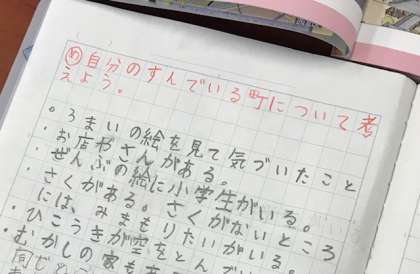 め 自分のすんでいる町について考
えよう。
。3まいの絵を見て気づいたこと
・お店やさんがある。
・ぜんぶの絵に小学生がいる。
・さくがある。さくがないところ
には、みまもりたいがいる。
・ひこうきが空をとんで
・むかしの家も